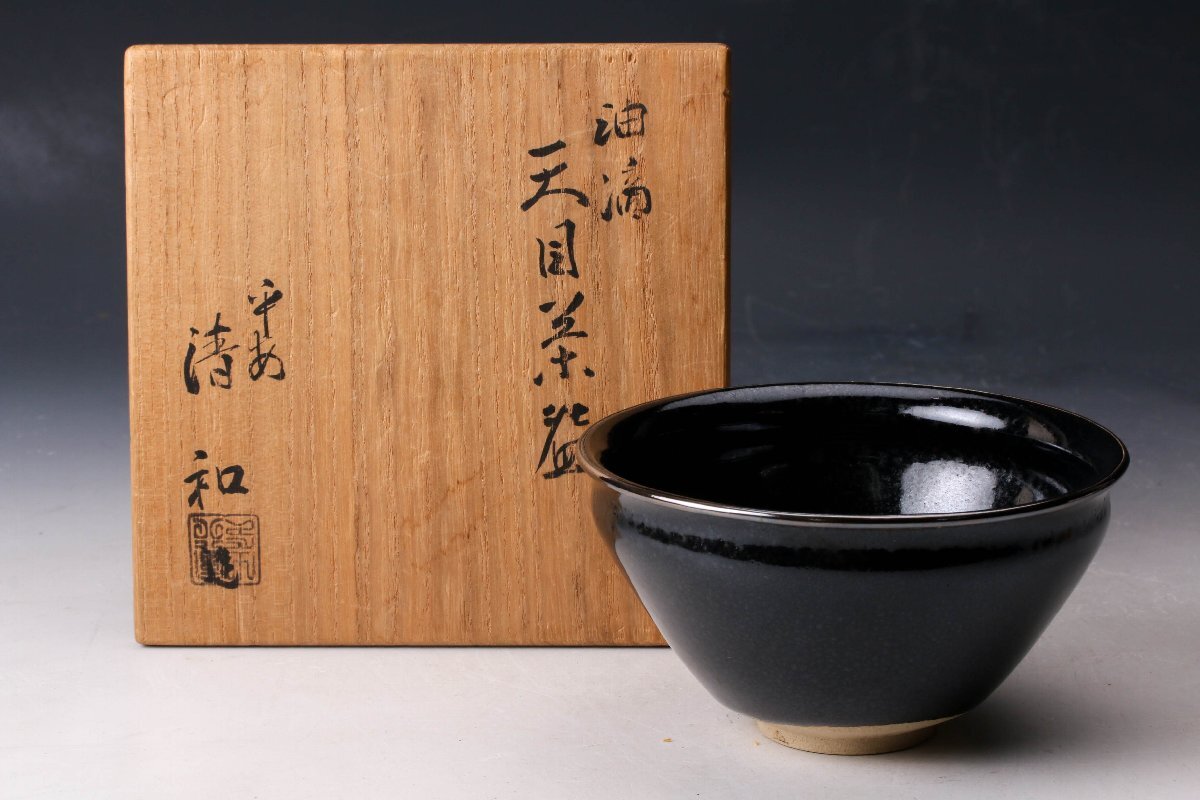 油滴
天目茶盌
平安
清和
造